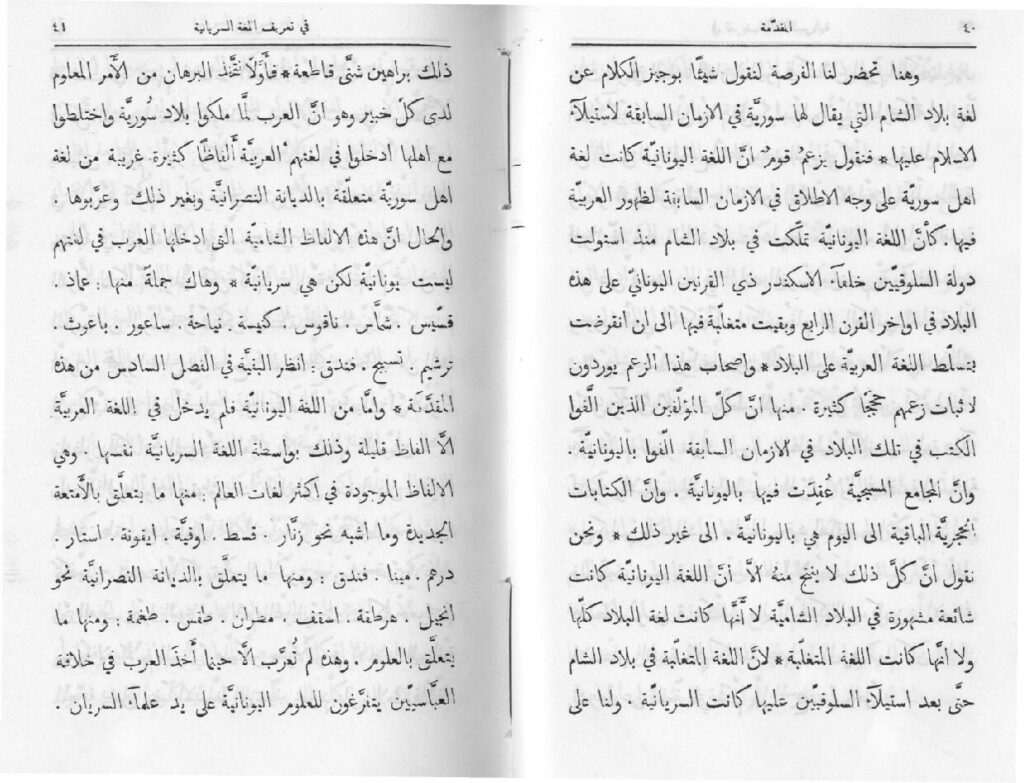 ٤٠
المقدّمة
وهنا تحضر لنا الفرصة لنقول شيئًا بوجيز الكلام عن
لغة بلاد الشام التي يقال لها سوريّة في الازمان السابقة لاستيلآء
الاسلام عليها * فنقول يزعم قوم انّ اللغة اليونانيّة كانت لغة
اهل سوريّة على وجه الاطلاق في الازمان السابقة لظهور العربية
فيها . كأنّ اللغة اليونانيّة تملّكت في بلاد الشام منذ استولت
دولة السلوقيّين خلفآء الاسكندر ذي القرنين اليوناني على هذه
البلاد في اواخر القرن الرابع وبقيت متغلّبة فيها الى ان انقرضت
بتسلّط اللغة العربيّة على البلاد * واصحاب هذا الزعم يوردون
لاثبات زعمهم حججًا كثيرة . منها انّ كلّ المؤلّفين الذين الّفوا
الكتب في تلك البلاد في الازمان السابقة الّفوا باليونانيّة .
وانّ المجامع المسيحيّة عُقِدت فيها باليونانيّة . وانّ الكتابات
الحجريّة الباقية الى اليوم هي باليونانيّة . الى غير ذلك * ونحن
نقول انّ كلّ ذلك لا ينتج منه الّا انّ اللغة اليونانيّة كانت
شائعة مشهورة في البلاد الشاميّة لا أنّها كانت لغة البلاد كلّها
ولا انّها كانت اللغة المتغلّبة * لانّ اللغة المتغلّبة في بلاد الشام
حتّى بعد استيلآء السلوقيّين عليها كانت السريانيّة . ولنا على
في تعريف اللغة السريانية
٤١
ذلك براهين شتّى قاطعة * فأوّلًا نتّخذ البرهان من الأمر المعلوم
لدى كلّ خبير وهو انّ العرب لمّا ملكوا بلاد سُوريّة واختلطوا
مع اهلها ادخلوا في لغتهم العربيّة ألفاظًا كثيرة غريبة من لغة
اهل سوريّة متعلّقة بالديانة النصرانيّة وبغير ذلك وعرّبوها .
والحال انّ هذه الالفاظ الشاميّة التي ادخلها العرب في لغتهم
ليست يونانيّة لكن هي سريانيّة * وهاك جملةً منها : عماد .
قسيس . شمأس . ناقوس . كنيسة . نياحة . ساعور . باعوث .
ترشيم . تسبيح . فندق : انظر البقيّة في الفصل السادس من هذه
المقدّمة * وامّا من اللغة اليونانيّة فلم يدخل في اللغة العربيّة
الّا الفاظ قليلة وذلك بواسطة اللغة السريانيّة نفسها . وهي
الالفاظ الموجودة في اكثر لغات العالم : منها ما يتعلّق بالأمتعة
الجديدة وما اشبه نحو زنّار . قسط . اوقيّة . ايقونة . استار .
درهم . مينا . فندق : ومنها ما يتعلّق بالديانة النصرانيّة نحو
انجيل . هرطقة . اسقف . مطران . طقس . طغمة : ومنها ما
يتعلّق بالعلوم . وهذه لم تُعرَّب الّا حينما أخذ العرب في خلافة
العبّاسيّين يتفرّغون للعلوم اليونانيّة على يد علمآء السريان .